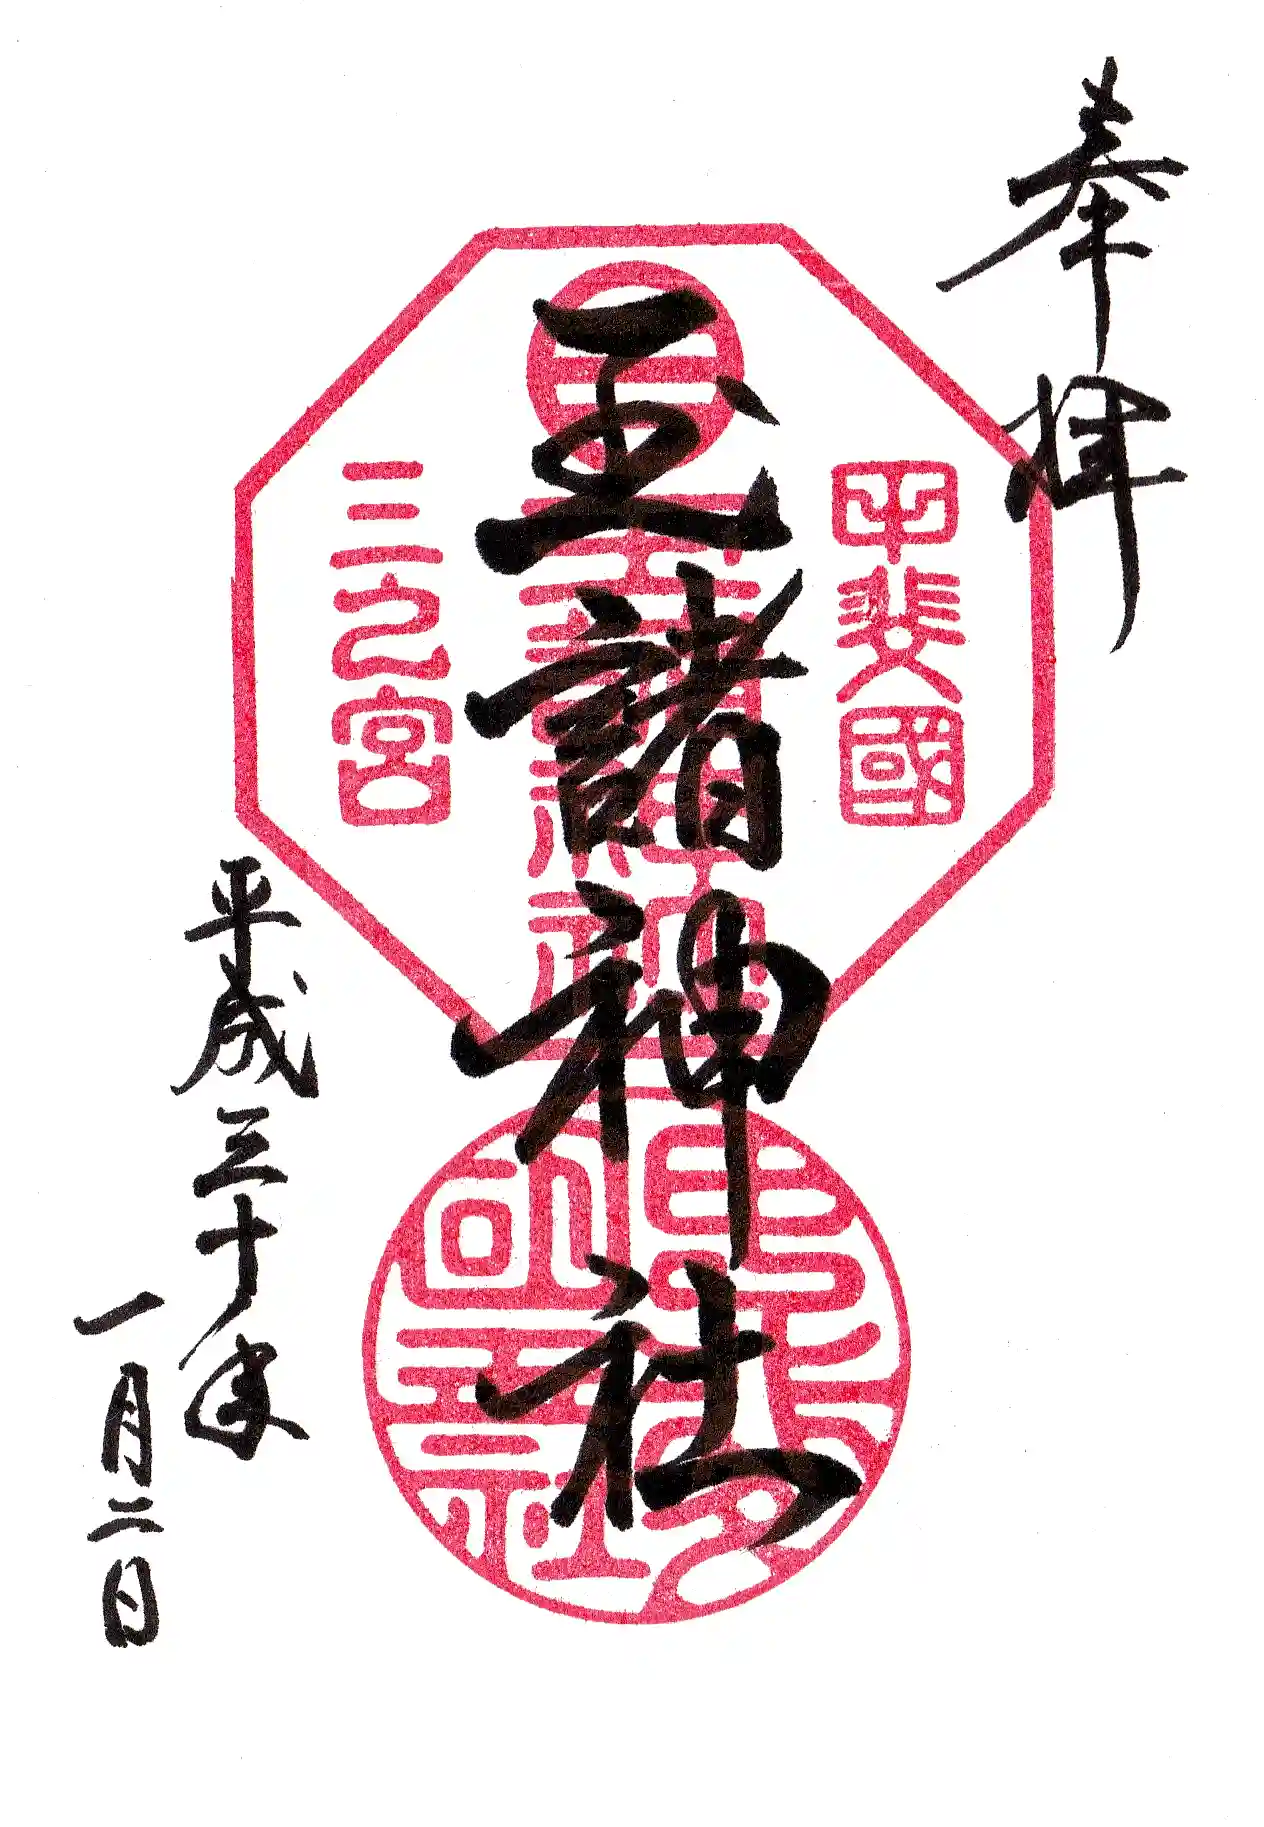 奉拝
甲斐國
玉諸神社
三之宮
平成三十年
一月二日